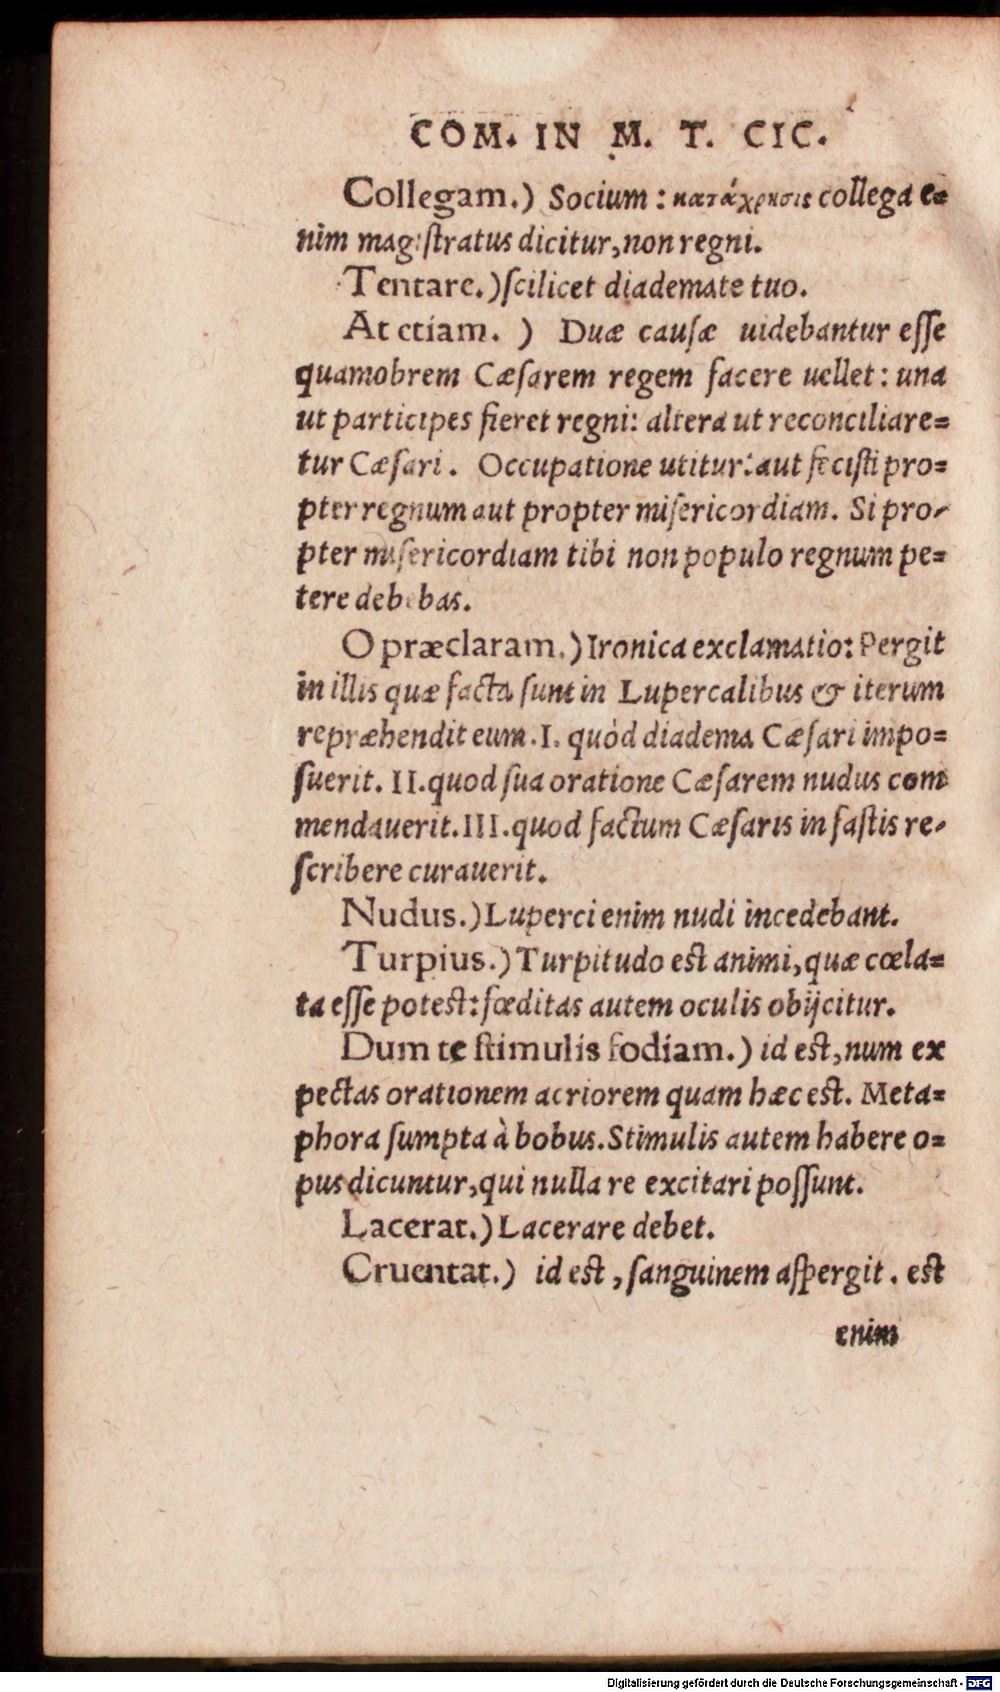 COM. IN M. T. CIC.
Collegam.) Socium : κατάχρησις collega e=
nim magistratus dicitur, non regni.
Tentare.) scilicet diademate tuo.
At etiam. ) Duæ causæ uidebantur esse
quamobrem Cæsarem regem facere uellet : una
ut particips fieret regni: altera ut reconciliare=
tur Cæsari. Occupatione utitur: aut fecisti pro=
pter regnum aut propter misericordiam. Si pro-
pter misericordiam tibi non populo regnum pe=
tere debebas.
O præclaram.) Ironica exclamatio: Pergit
in illis quæ facta sunt in Lupercalibus & iterum
repræhendit eum. I. quòd diadema Cæsari impo=
suerit. II. quod sua oratione Cæsarem nudus com
mendauerit. III. quod factum Cæsaris in fastis re-
scribere curauerit.
Nudus.) Luperci enim nudi incedebant.
Turpius.) Turpitudo est animi, quæ cœla=
ta esse potest: fœditas autem oculis obijcitur.
Dum te stimulis fodiam.) id est, num ex
pectas orationem acriorem quam hæc est. Meta=
phora sumpta à bobus. Stimulis autem habere o=
pus dicuntur, qui nulla re excitari possunt.
Lacerat.) Lacerare debet.
Cruentat.) id est, sanguinem aspergit. est
enim
Digitalisierung gefördert durch die Deutsche Forschungsgemeinschaft - DFG